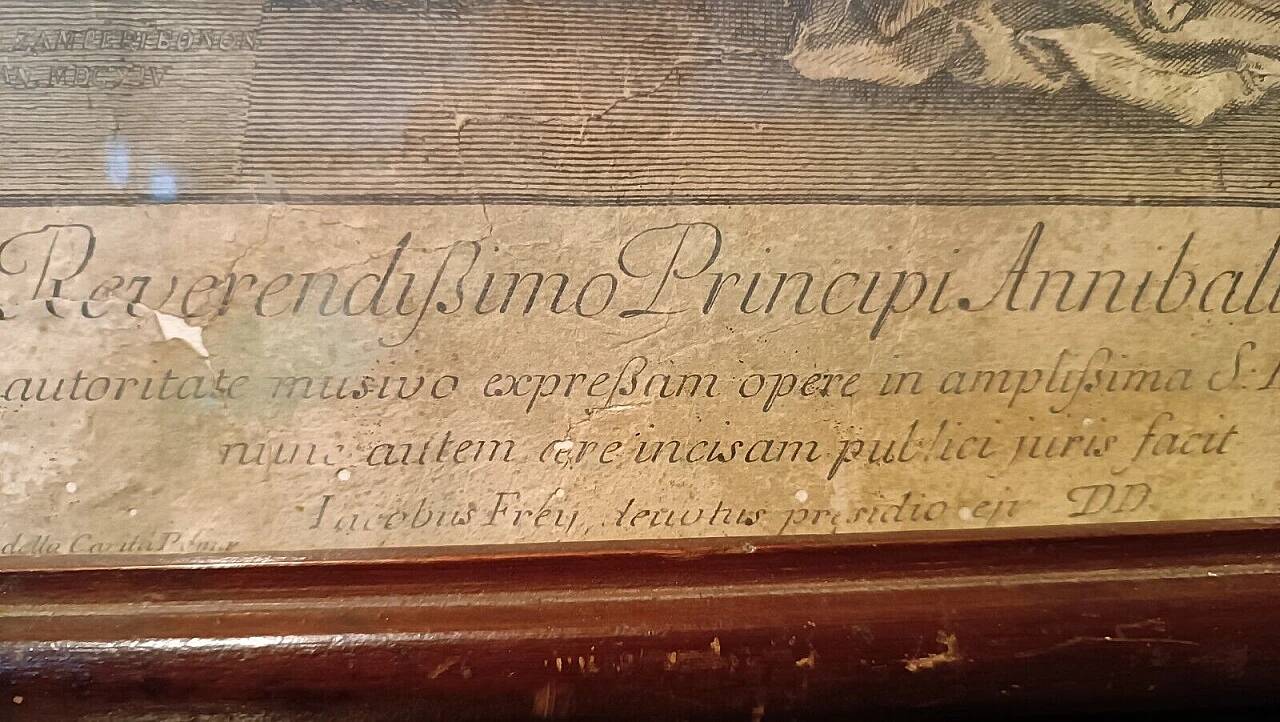 ZAMPIERI BONON
AN. MDCXIV
Reverendißimo Principi Annibali
autoritate musivo expreßam opere in amplißima S.
nunc autem ære incisam publici juris facit
Iacobus Frey, devotus præsidio ejs DD.
della Carità